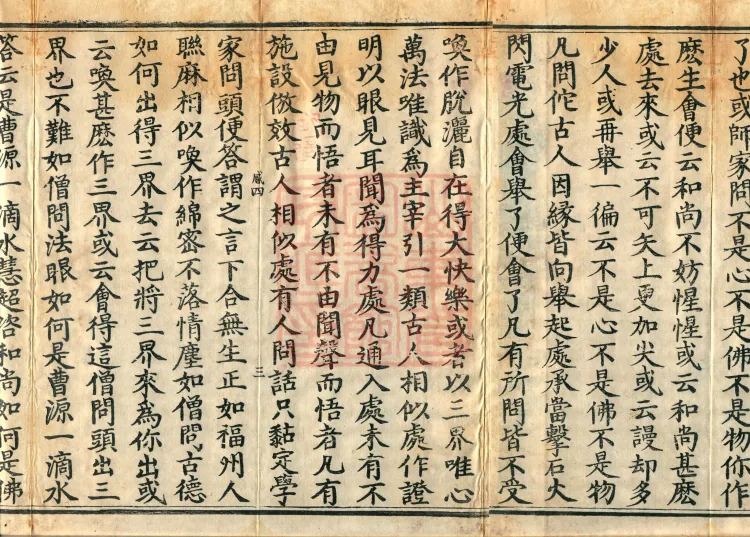 了也或師家問不是心不是佛不是物你作
麽生會便云和尚不妨惺惺或云和尚甚麽
處去來或云不可矢上更加尖或云謾却多
少人或再舉一徧云不是心不是佛不是物
凡問佗古人因緣皆向舉起處承當擊石火
閃電光處會舉了便會了凡有所問皆不受
喚作脫灑自在得大快樂或者以三界唯心
萬法唯識爲主宰引一類古人相似處作證
明以眼見耳聞爲得力處凡通入處未有不
由見物而悟者未有不由聞聲而悟者凡有
施設倣效古人相似處有人問話只黏定學
咸四
三
家問頭便答謂之言下合無生正如福州人
聮麻相似喚作綿密不落情塵如僧問古德
如何出得三界去云把將三界來為你出或
云喚甚麽作三界或云會得這僧問頭出三
界也不難如僧問法眼如何是曹源一滴水
答云是曹源一滴水慧超咨和尚如何是佛